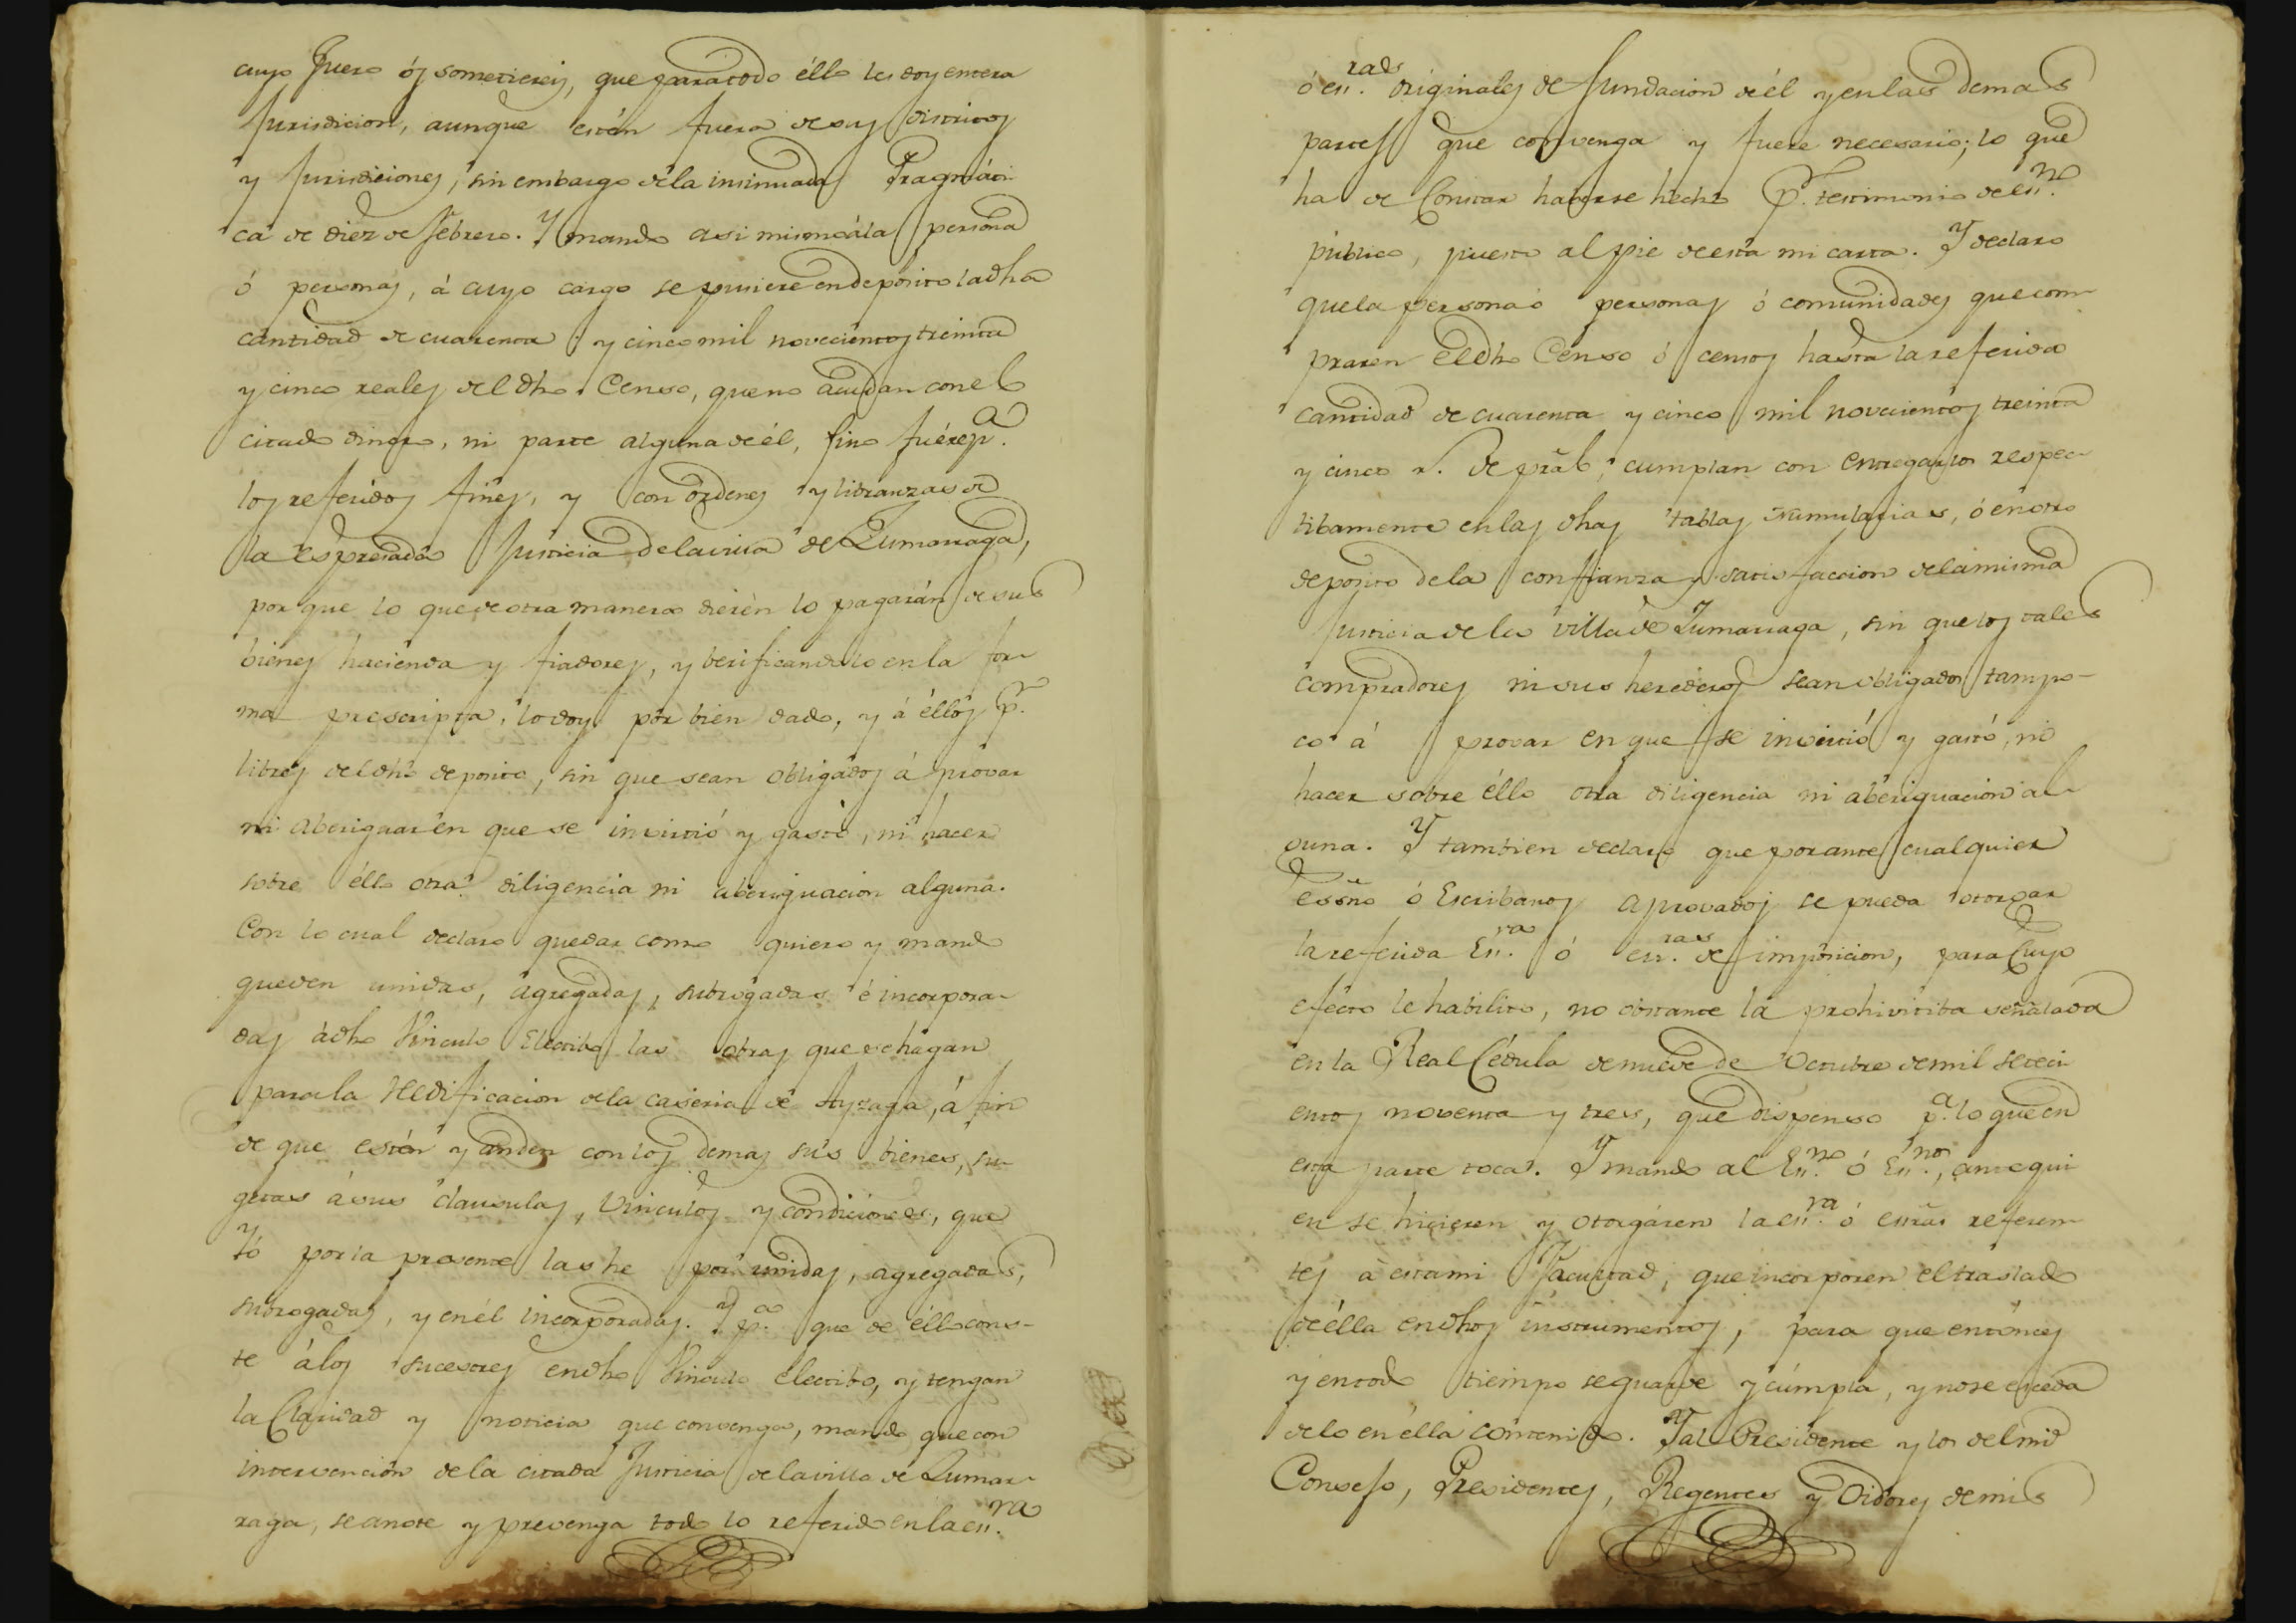 cuyo fuero ós sometiereis, que para todo éllo les doy entera
Jurisdicion, aunque estén fuera de sus distritos
y Jurisdiciones, sin embargo de la insinuada Pragmáti-
ca de diez de Febrero. Y mando asi mismo á la persona
ó personas, á cuyo cargo se pusiere en deposito la dha
cantidad de cuarenta y cinco mil novecientos treinta
y cinco reales del dho Censo, que no acudan con el
citado dinero, ni parte alguna de él, sino fuére pa.
los referidos fines, y con órdenes y libranzas de
la espresada Justicia de la villa de Zumarraga,
por que lo que de otra manera dierén lo pagarán de sus
bienes hacienda y fiadores, y berificandolo en la for-
ma prescripta, lo doy por bien dado, y á éllos pr.
libres del dho deposito, sin que sean obligados á provar
ni aberiguar en que se invirtió y gastó, ni hacer
sobre éllo otra diligencia ni aberiguacion alguna.
Con lo cual declaro quedar como quiero y mando
queden unidas, agregadas, subrogadas é incorpora-
das á dho Vinculo Electibo las obras que se hagan
para la redificacion de la caseria de Ayzaga, á fin
de que estén y anden con los demas sus bienes, su-
getas á sus clausulas, vinculos y condiciones, que
yó por la presente las he por unidas, agregadas,
subrogadas, y en él incorporadas. Y pa. que de éllo cons-
te á los sucesores en dho Vinculo electibo, y tengan
la Claridad y noticia que convenga, mando que con
intervención de la citada Justicia de la villa de Zumar-
raga, se anote y prevenga todo lo referido en la esra.
ó esras. originales de fundacion de él y en las demas
partes que convenga y fuere necesario; lo que
ha de Constar haverse hecho pr. testimonio de esno.
publico, puesto al pie de esta mi carta. Y declaro
que la persona ó personas ó comunidades que com-
praren el dho Censo ó censos hasta la referida
cantidad de cuarenta y cinco mil novecientos treinta
y cinco r. de pral, cumplan con entregarlos respec-
tibamente en las dhas tablas Numularias, ó en otro
deposito de la confianza y satisfaccion de la misma
Justicia de la villa de Zumarraga, sin que los tales
compradores ni sus herederos sean obligados tampo-
co á provar en que se invirtió y gastó, ni
hacer sobre éllo otra diligencia ni aberiguacion al-
guna. Y tambien declaro que por ante cualquier
essno ó Escribanos aprovados se pueda otorgar
la referida Esra. ó esras. de imposicion, para Cuyo
efecto le habilito, no obstante la prohivitiba señalada
en la Real Cédula de nueve de Octubre de mil seteci-
entos noventa y tres, que dispenso pa. lo que en
esta parte toca. Y mando al Esno. ó Esnos., ante qui-
en se hicieren y otorgáren la esra. ó esras referen-
tes á esta mi Facultad, que incorporen el traslado
de élla en dhos instrumentos, para que entónces
y en todo tiempo se guarde y cúmpla, y no se eceda
de lo en élla contenido. Y al Presidente y los del mi
Consejo, Presidentes, Regentes y Oidores de mis